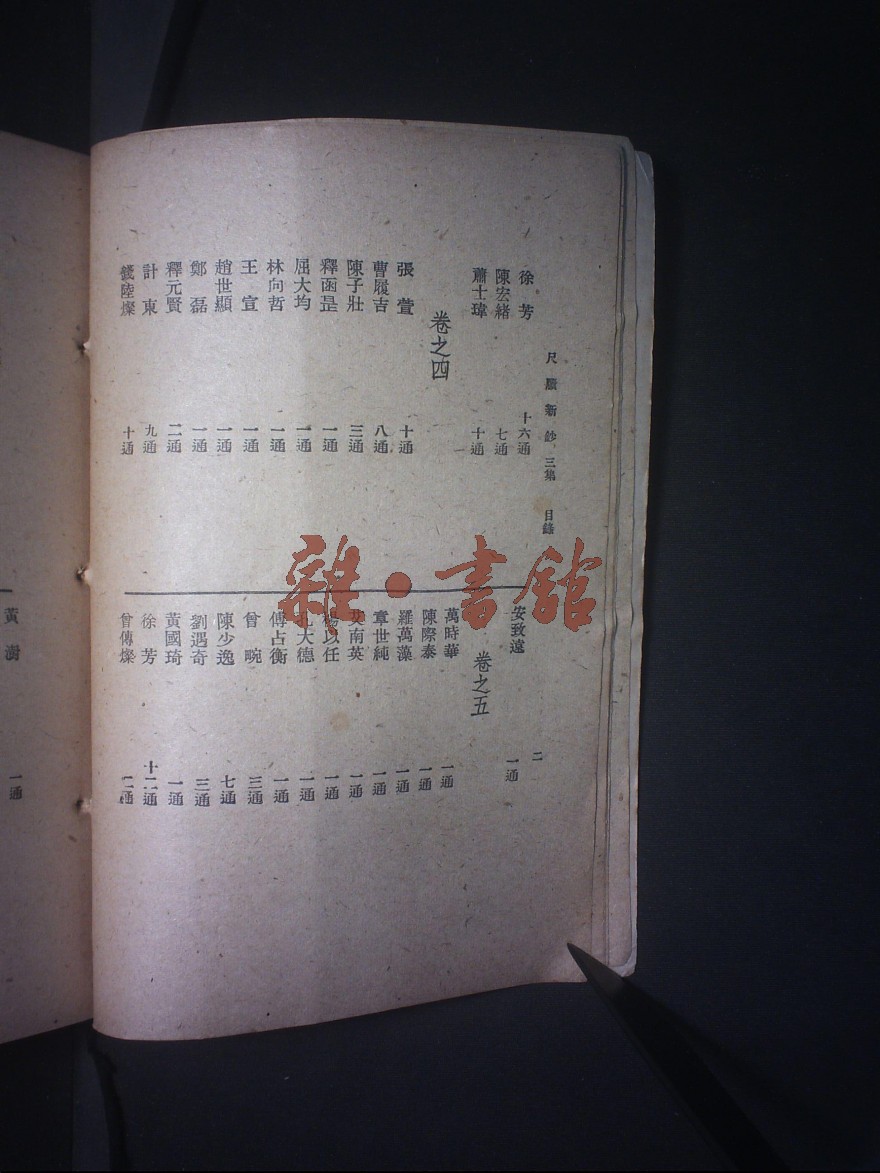 尺牘新鈔 三集 目錄
二
徐芳 十六通
陳宏緒 七通
蕭士瑋 十通
卷之四
張萱 十通
曹履吉 八通
陳子壯 三通
釋函昰 一通
屈大均 一通
林向哲 一通
王宣 一通
趙世顯 一通
鄭磊 一通
釋元賢 二通
計東 九通
錢陸燦 十通
安致遠 一通
卷之五
萬時華 一通
陳際泰 一通
羅萬藻 一通
章世純 一通
艾南英 一通
楊以任 一通
孔大德 一通
傅占衡 一通
曾畹 三通
陳少逸 七通
劉遇奇 三通
黃國琦 一通
徐芳 十二通
曾傳燦 二通
黃澍 一通
雜·書館